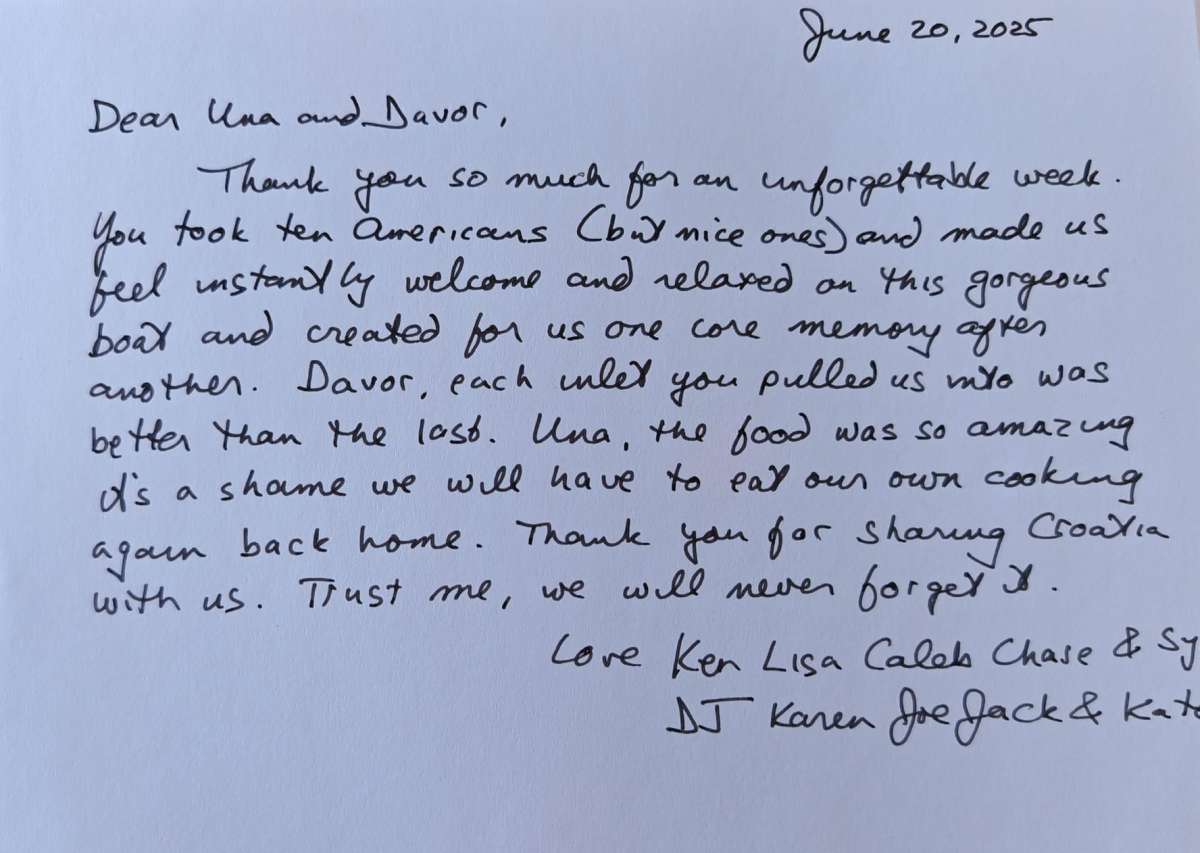 June 20, 2025
Dear Una and Davor,
Thank you so much for an unforgettable week.
You took ten Americans (but nice ones) and made us
feel instantly welcome and relaxed on this gorgeous
boat and created for us one core memory after
another. Davor, each inlet you pulled us into was
better than the last. Una, the food was so amazing
it's a shame we will have to eat our own cooking
again back home. Thank you for sharing Croatia
with us. Trust me, we will never forget it.
Love Ken Lisa Caleb Chase &
DJ Karen Joe Jack &